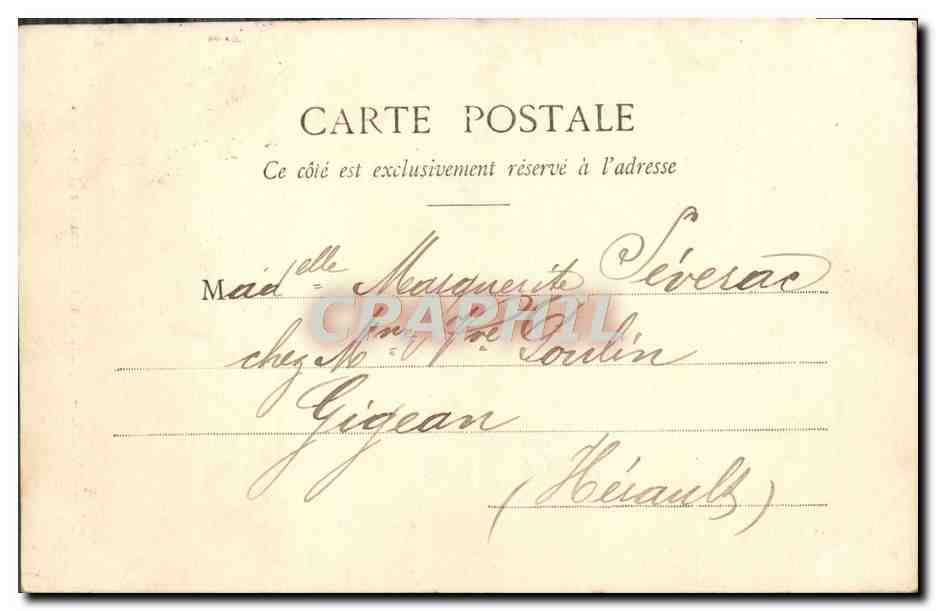 CARTE POSTALE
Ce côté est exclusivement réservé à l'adresse
Mad^elle Marguerite Séverac
CPAPHIL
chez M^me V^ve Poulin
Gigean
(Hérault)